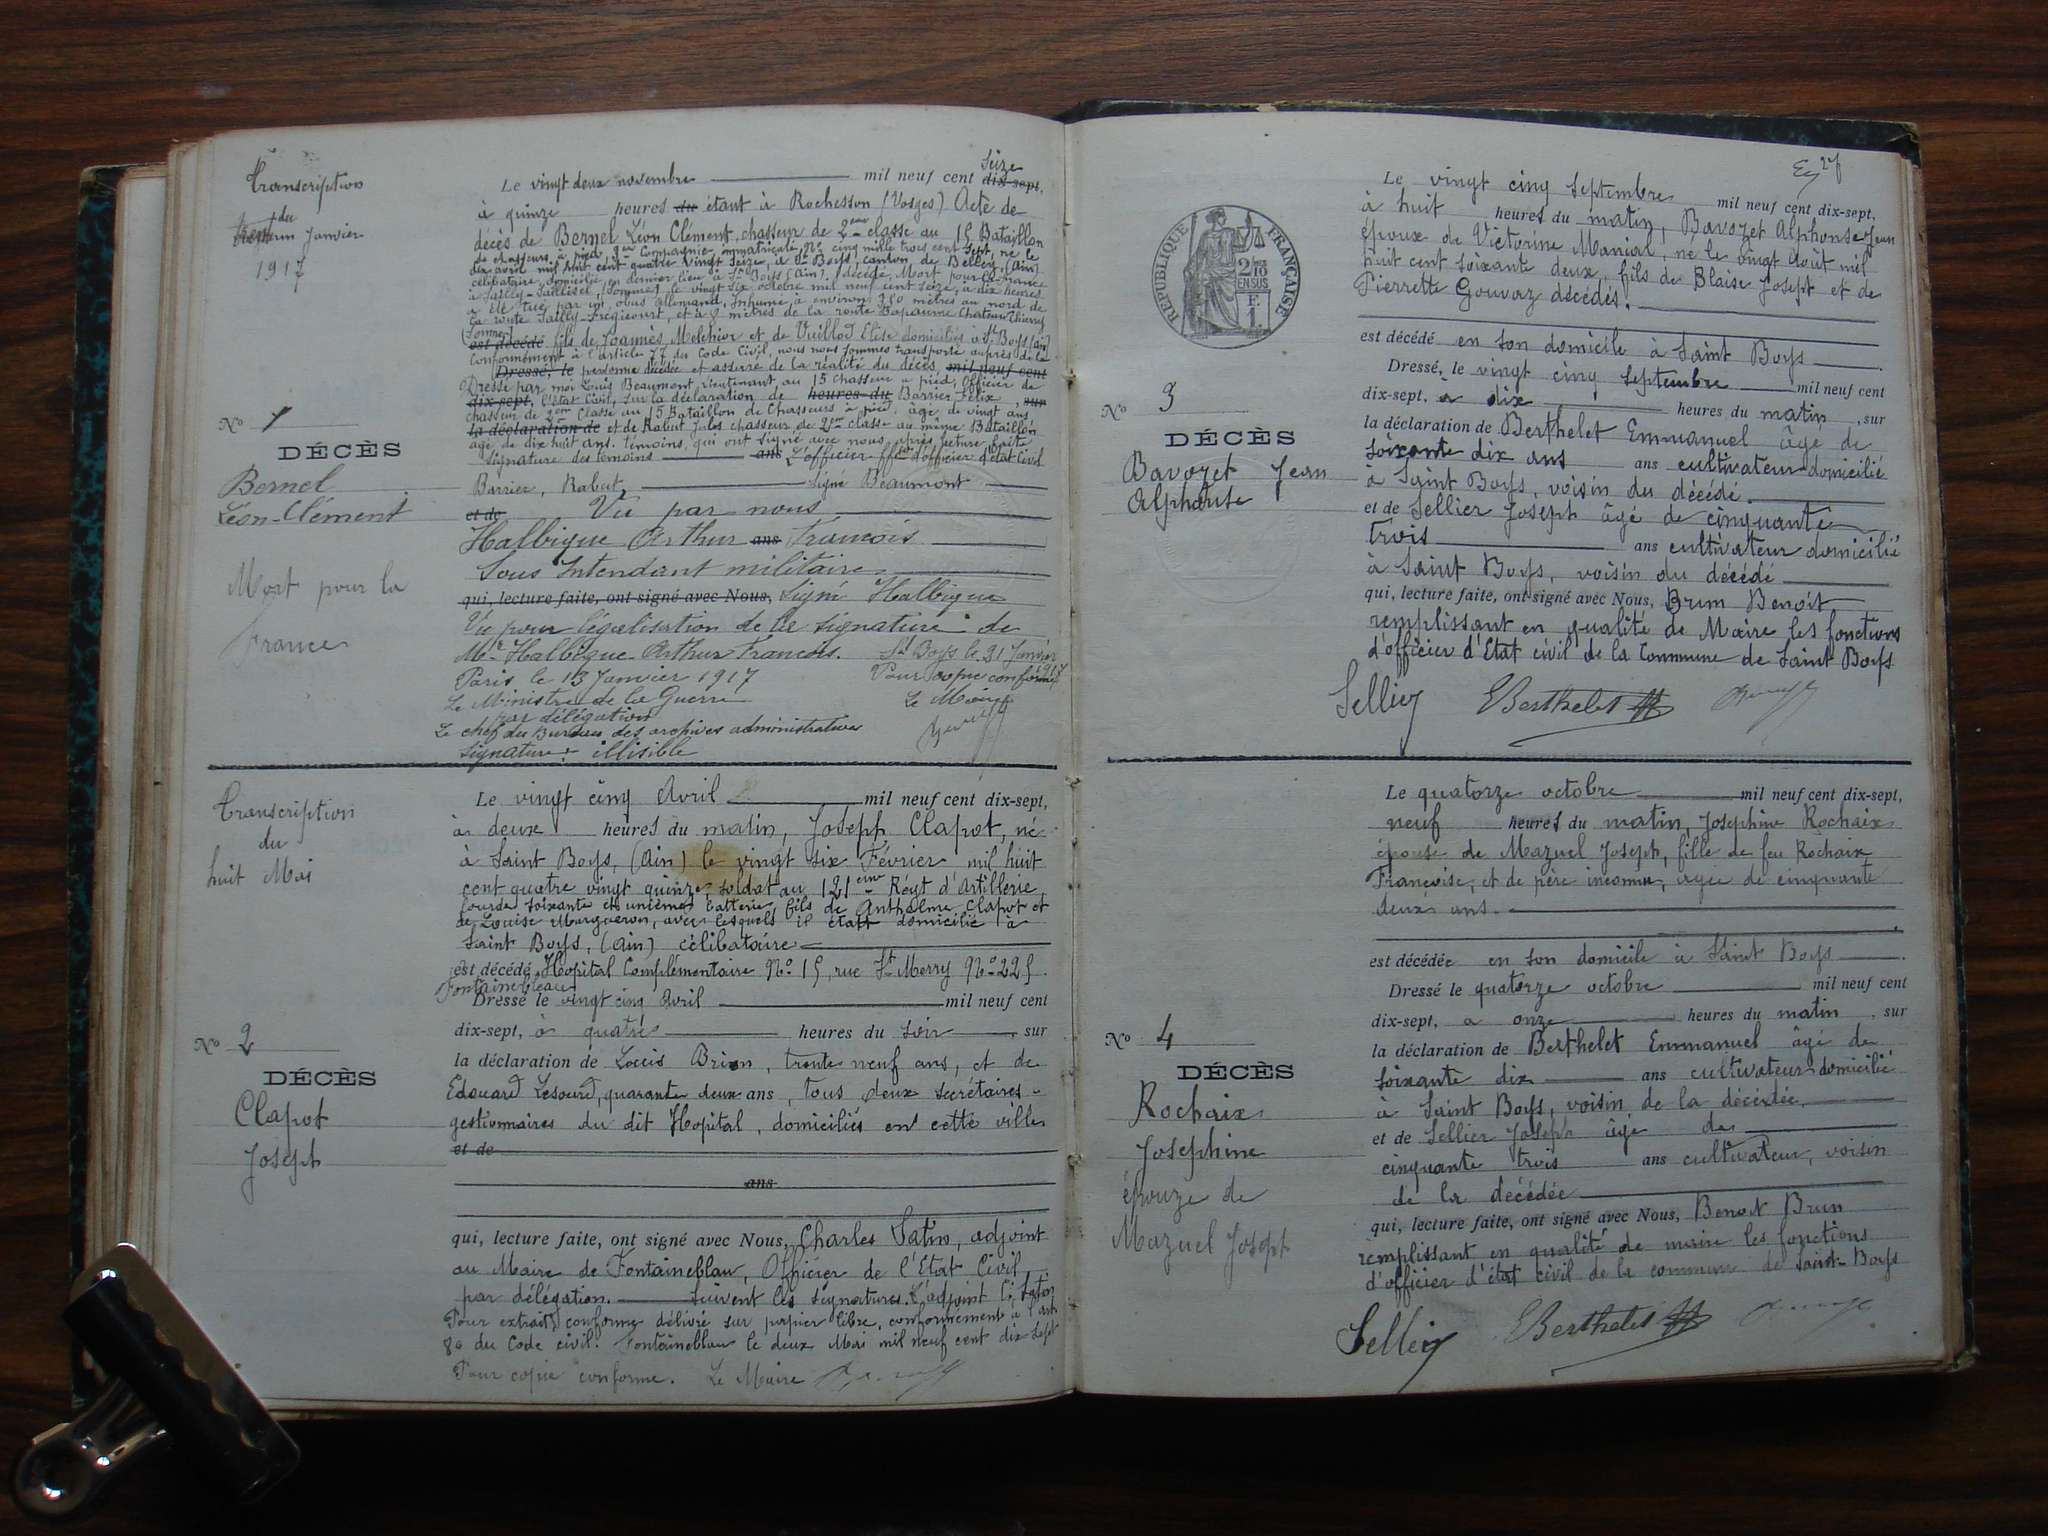 Transcription
du
Janvier
1917
No 1
DÉCÈS
Bernel
Léon-Clément
Mort pour la
France
Le vingt deux novembre mil neuf cent dix-sept, Seize
à quinze heures du étant à Rochesson (Vosges) Acte de
décès de Bernel Léon Clément, chasseur de 2eme classe au 15 Bataillon
de chasseurs à pied, Compagnie, immatriculé No cinq mille trois cent sept, né le
dix avril mil huit cent quatre vingt seize, à St Boys, canton de Belley (Ain)
célibataire, domicilié en dernier lieu à St Boys (Ain), décédé Mort pour la France
à Sailly-Saillisel, (Somme) le vingt six octobre mil neuf cent seize, à dix heures
a été tué par un obus allemand, Inhumé à environ 380 mètres au nord de
la route Sailly-Frégicourt, et à 8 mètres de la route Bapaume Chateau Thierry
(Somme)
est décédé fils de Joannès Melchior et de Vuillod Elise domiciliés à St Boys (Ain)
Conformément à l'article 77 du Code Civil, nous nous sommes transporté auprès de la
Dressé, le personne décédée et assuré de la réalité du décès, mil neuf cent
Dressé par moi Louis Beaumont, lieutenant au 15 chasseur à pied, officier de
dix-sept, l'état Civil, sur la déclaration de heures du Barrier Félix, sur
chasseur de 2eme Classe au 15 Bataillon de Chasseurs à pied, âgé de vingt ans
la déclaration de et de Rabut Jules chasseur de 2eme classe au même Bataillon
âgé de dix huit ans. témoins, qui ont signé avec nous après lecture faite
Signature des témoins ans L'officier ff d'officier d'état Civil
Barrier, Rabut, Signé Beaumont
et de Vu par nous
Halbique Arthur ans François
Sous Intendant militaire
qui, lecture faite, ont signé avec Nous, Signé Halbique
Vu pour légalisation de la signature de
Mr Halbique Arthur François. St Boys le 21 Janvier 1917
Paris le 13 Janvier 1917 Pour copie conforme
Le Ministre de la Guerre Le Maire
par délégation
Le chef du Bureau des archives administratives
Signature : illisible
Transcription
du
huit Mai
No 2
DÉCÈS
Clapot
Joseph
Le vingt cinq Avril mil neuf cent dix-sept,
à deux heures du matin, Joseph Clapot, né
à Saint Boys, (Ain) le vingt six Février mil huit
cent quatre vingt quinze, soldat au 121eme Régt d'Artillerie
lourde soixante et unième batterie, fils de Anthelme Clapot et
de Louise Margueron, avec lesquels il était domicilié à
Saint Boys, (Ain) célibataire
est décédé Hopital Complémentaire No 15, rue St Merry No 225.
Fontainebleau
Dressé le vingt cinq Avril mil neuf cent
dix-sept, à quatre heures du soir, sur
la déclaration de Louis Brion, trente neuf ans, et de
Edouard Lesourd, quarante deux ans, tous deux secrétaires-
gestionnaires du dit Hopital, domiciliés en cette ville
et de
ans
qui, lecture faite, ont signé avec Nous, Charles Satin, adjoint
au Maire de Fontaineblau, Officier de l'Etat Civil,
par délégation. Suivent les signatures. L'adjoint C. Satin
Pour extrait conforme délivré sur papier libre, conformément à l'art.
80 du Code civil. Fontaineblau le deux Mai mil neuf cent dix sept
Pour copie conforme. Le Maire
27
RÉPUBLIQUE FRANÇAISE
2/10 EN SUS
No 3
DÉCÈS
Bavozet Jean
Alphonse
Le vingt cinq Septembre mil neuf cent dix-sept,
à huit heures du matin, Bavozet Alphonse Jean
époux de Victorine Manial, né le vingt Août mil
huit cent soixante deux, fils de Blaise Joseph et de
Pierrette Gouvoz décédés.
est décédé en son domicile à Saint Boys
Dressé, le vingt cinq Septembre mil neuf cent
dix-sept, à dix heures du matin, sur
la déclaration de Berthelet Emmanuel âgé de
soixante dix ans ans cultivateur domicilié
à Saint Boys, voisin du décédé.
et de Sellier Joseph âgé de cinquante
trois ans cultivateur domicilié
à Saint Boys, voisin du décédé
qui, lecture faite, ont signé avec Nous, Brun Benoît
remplissant en qualité de Maire les fonctions
d'officier d'Etat civil de la Commune de Saint Boys
Sellier EBerthelet
No 4
DÉCÈS
Rochaix
Josephine
épouze de
Mazuel Joseph
Le quatorze octobre mil neuf cent dix-sept,
neuf heures du matin, Josephine Rochaix
épouse de Mazuel Joseph, fille de feu Rochaix
Françoise, et de père inconnu, agée de cinquante
deux ans.
est décédée en son domicile à Saint Boys
Dressé le quatorze octobre mil neuf cent
dix-sept, à onze heures du matin, sur
la déclaration de Berthelet Emmanuel âgé de
soixante dix ans cultivateur domicilié
à Saint Boys, voisin de la décédée,
et de Sellier Joseph âgé de
cinquante trois ans cultivateur, voisin
de la décédée
qui, lecture faite, ont signé avec Nous, Benoit Brun
remplissant en qualité de maire les fonctions
d'officier d'état civil de la commune de Saint-Boys
Sellier EBerthelet